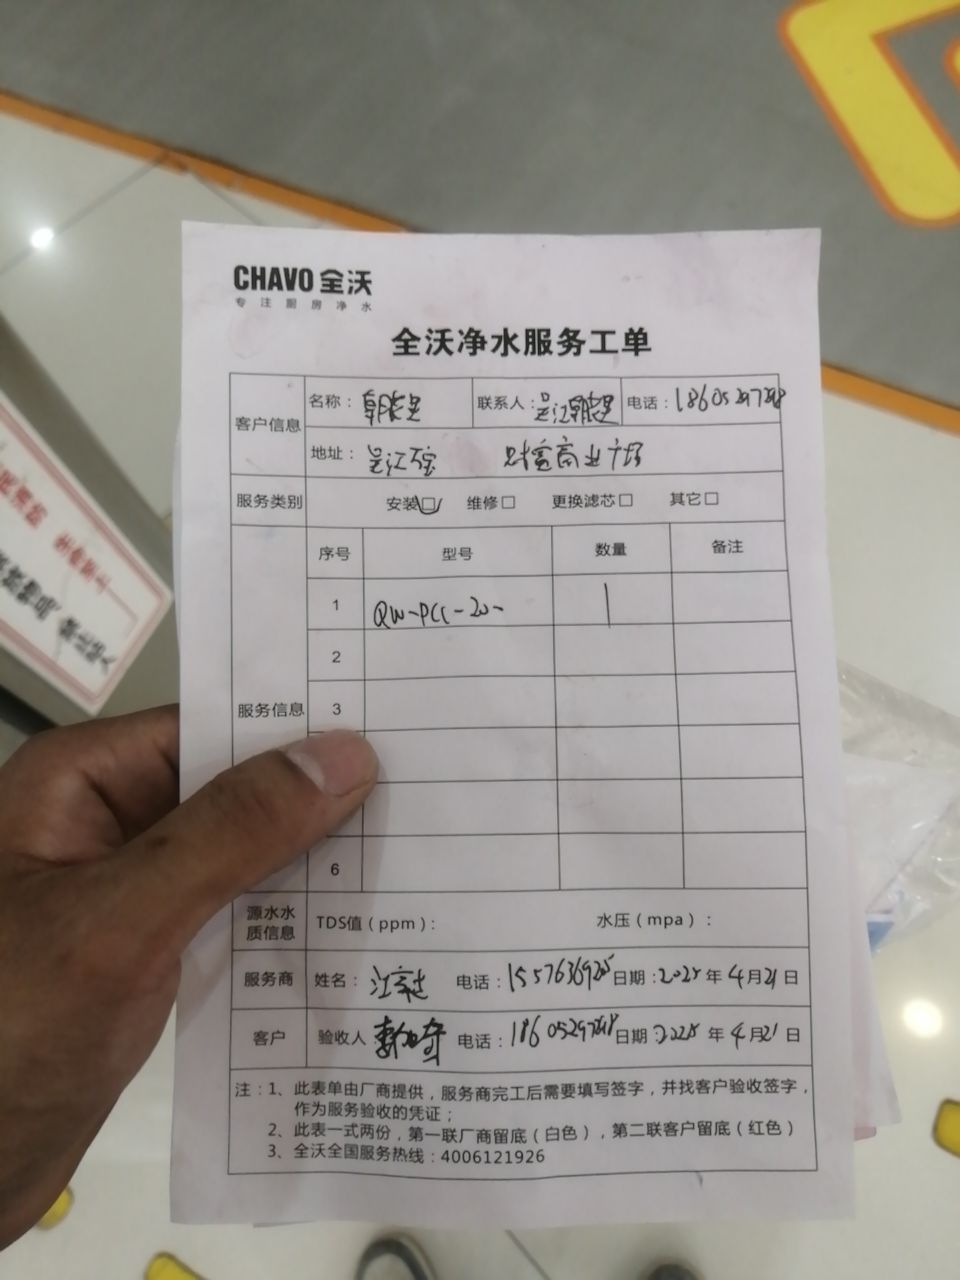 CHAVO 全沃
专注厨房净水
全沃净水服务工单
客户信息
名称：
联系人：吴江
电话：
地址：吴江万宝 财富商业广场
服务类别 安装☐ 维修☐ 更换滤芯☐ 其它☐
服务信息
序号 型号 数量 备注
1 QW-PCC-20- 1
2
3
6
源水水质信息 TDS值（ppm）： 水压（mpa）：
服务商 姓名： 电话： 日期：2025年4月21日
客户 验收人 电话： 日期：2025年4月21日
注：1、此表单由厂商提供，服务商完工后需要填写签字，并找客户验收签字，
作为服务验收的凭证；
2、此表一式两份，第一联厂商留底（白色），第二联客户留底（红色）
3、全沃全国服务热线：4006121926